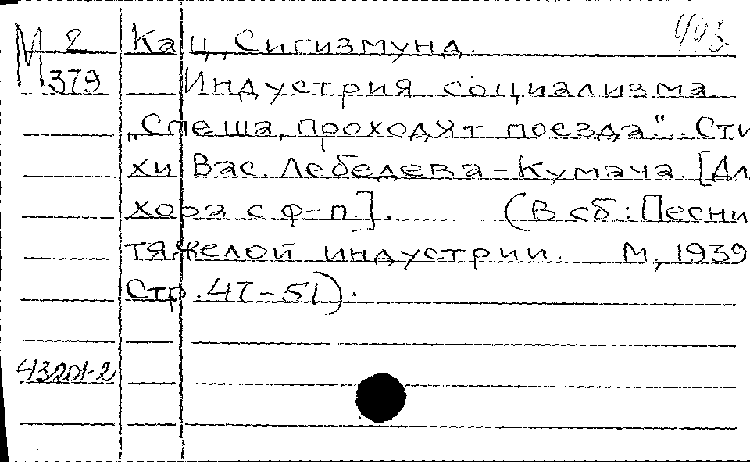 М 2 Кац, Сигизмунд 403
379 Индустрия социализма
„Спеша, проходят поезда". Сти
хи Вас. Лебедева-Кумача [Дл
хора с ф-п]. (В сб: Песни
тяжелой индустрии. М, 1939
Стр. 47-51).
43201-2